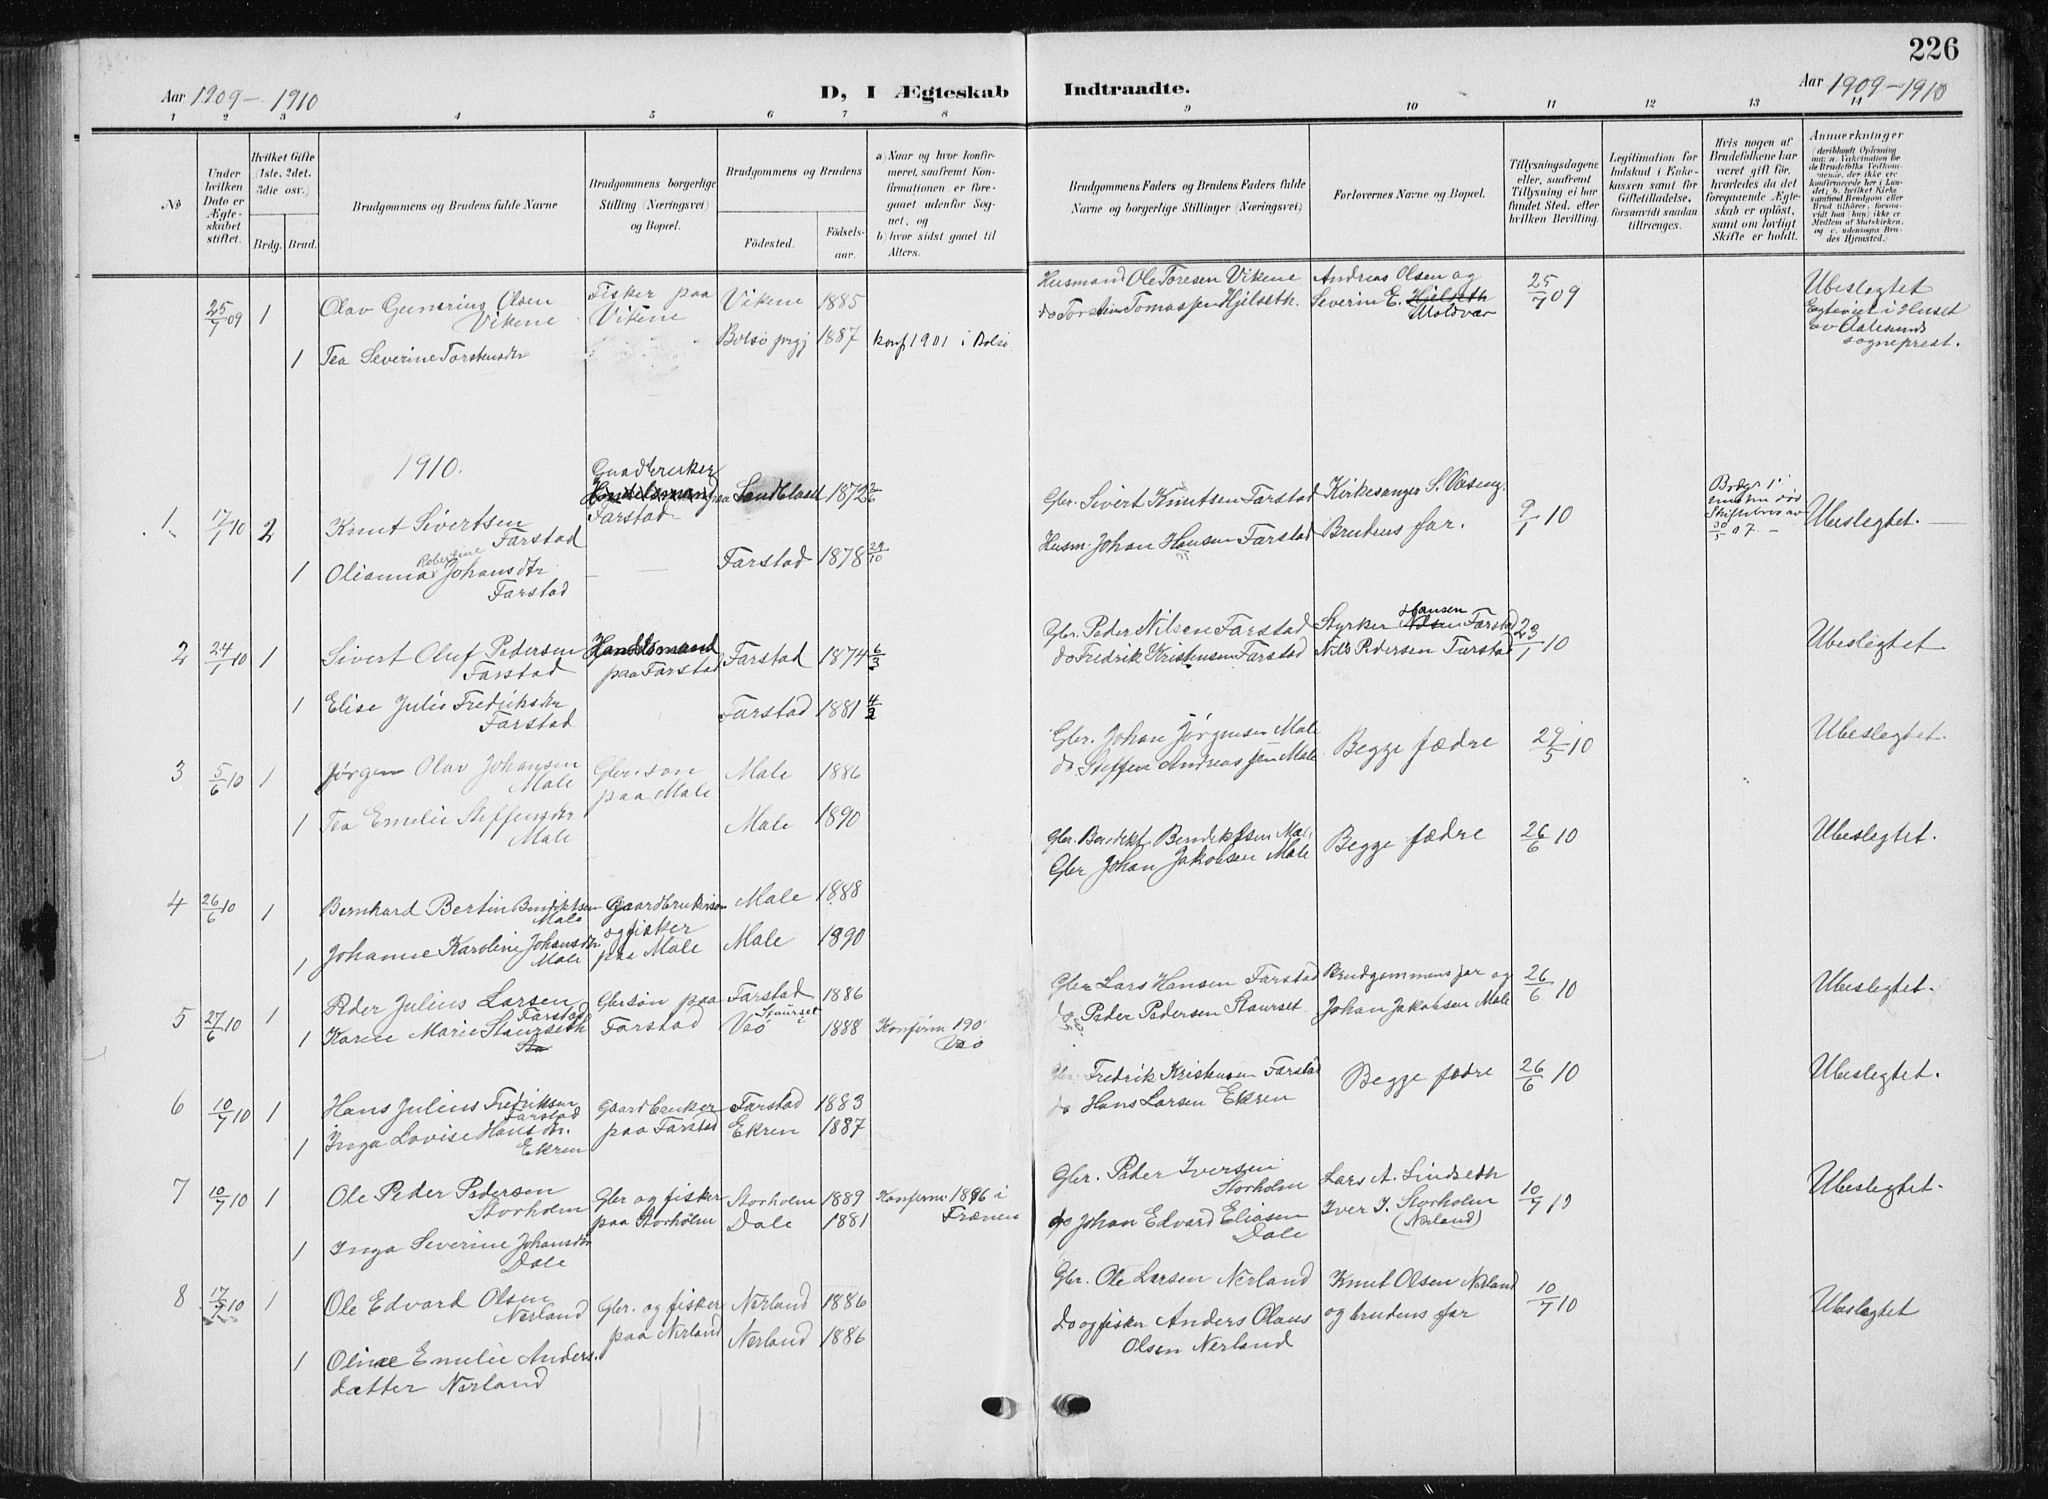 226
Aar 1909 - 1910
D, I Ægteskab Indtraadte.
Aar 1909 - 1910
1 2 3 4 5 6 7 8 9 10 11 12 13 14
No
Under hvilken Dato er Ægteskabet stiftet.
Hvilket Gifte (1ste, 2det, 3die osv.)
Brdg. Brud.
Brudgommens og Brudens fulde Navne
Brudgommens borgerlige Stilling (Næringsvei) og Bopæl.
Brudgommens og Brudens
Födested. Födsels-aar.
a) Naar og hvor konfirmeret, saafremt Konfirmationen er foregaaet udenfor Sognet, og
b) hvor sidst gaaet til Alters.
Brudgommens Faders og Brudens Faders fulde Navne og borgerlige Stillinger (Næringsvei)
Forlovernes Navne og Bopæl.
Tillysningsdagene eller, saafremt Tillysning ei har fundet Sted, efter hvilken Bevilling.
Legitimation for Indskud i Enkekassen samt for Giftetilladelse, forsaavidt saadan tiltrænges.
Hvis nogen af Brudefolkene har været gift för, hvorledes da det foregaaende Ægteskab er oplöst, samt om lovligt Skifte er holdt.
Anmerkninger
25/7 09 1 Olav Gunerius Olsen Vikene
Fisker paa Vikene
Vikene 1885
Husmand Ole Toresen Vikene
Andreas Olsen og
25/7 09
Ubeslegtet
1 Tea Severine Torstensdtr
Bolsø prgj 1887 konf 1901 i Bolsø
do Torstein Tomassen Hjelseth
Severin E. Hjelseth Moldvær
Egteviet i Huset av Aalesunds sogneprest.
1910.
1 17/1 10 2 Knut Sivertsen Farstad
Gaardbruker Handelsmand paa Farstad
Sandblaast 1872
Gbr. Sivert Knutsen Farstad
Kirkesanger S. Vaseng
9/1 10
Brdgs 1 hustru død Skiftebrev av 30/5 07. -
Ubeslegtet. -
1 Olianna Robertine Johansdtr Farstad
Farstad 1878 29/10
Husm. Johan Hansen Farstad
Brudens far.
2 24/1 10 1 Sivert Oluf Pedersen Farstad
Handelsmand paa Farstad
Farstad 1874 6/3
Gbr. Peder Nilsen Farstad
Styrker Nilsen Hansen Farstad
23/1 10
Ubeslegtet
1 Elise Julie Fredriksdtr Farstad
Farstad 1881
do Fredrik Kristensen Farstad
Nils Pedersen Farstad
3 5/6 10 1 Jørgen Olav Johansen Male
Gbr. søn paa Male
Male 1886
Gbr. Johan Jørgensen Male
Begge fædre
29/5 10
Ubeslegtet.
1 Tea Emelie Steffensdtr Male
Male 1890
do Steffen Andreassen Male
4 26/6 10 1 Bernhard Bertin Bendiktsen Male
Gaardbrukersøn og fisker paa Male
Male 1888
Gbr. Bendikt Bendiktsen Male
Begge fædre
26/6 10
Ubeslegtet.
1 Johanne Karoline Johansdtr Male
Male 1890
Gbr Johan Jakobsen Male
5 27/6 10 1 Peder Julius Larsen Farstad
Gbr søn paa Farstad
Farstad 1886
Gbr Lars Hansen Farstad
Brudgommens far og
26/6 10
Ubeslegtet.
1 Karen Marie Staurseth
Staurset i Veø 1888 Konfirm 190 Veø
do Peder Pedersen Staurset
Johan Jakobsen Male
6 10/7 10 1 Hans Julius Fredriksen Farstad
Gaardbruker paa Farstad
Farstad 1883
Gbr. Fredrik Kristensen Farstad
Begge fædre
26/6 10
Ubeslegtet.
1 Inga Lovise Hansdtr. Ekren
Ekren 1887
do Hans Larsen Ekren
7 10/7 10 1 Ole Peder Pedersen Storholm
Gbr og fisker paa Storholm
Storholm 1889
Konfirm 1896 i Frænen
Gbr. Peder Iversen Storholm
Lars A. Lindseth
10/7 10
Ubeslegtet.
1 Inga Severine Johansdtr Dale
Dale 1881
do Johan Edvard Eliasen Dale
Iver I. Storholm (Nerland)
8 17/7 10 1 Ole Edvard Olsen Nerland
Gbr. og fisker paa Nerland
Nerland 1886
Gbr. Ole Larsen Nerland
Knut Olsen Nerland
10/7 10
Ubeslegtet
1 Oline Emilie Andersdatter Nerland
Nerland 1886
do og fisker Anders Olaus Olsen Nerland
og brudens far